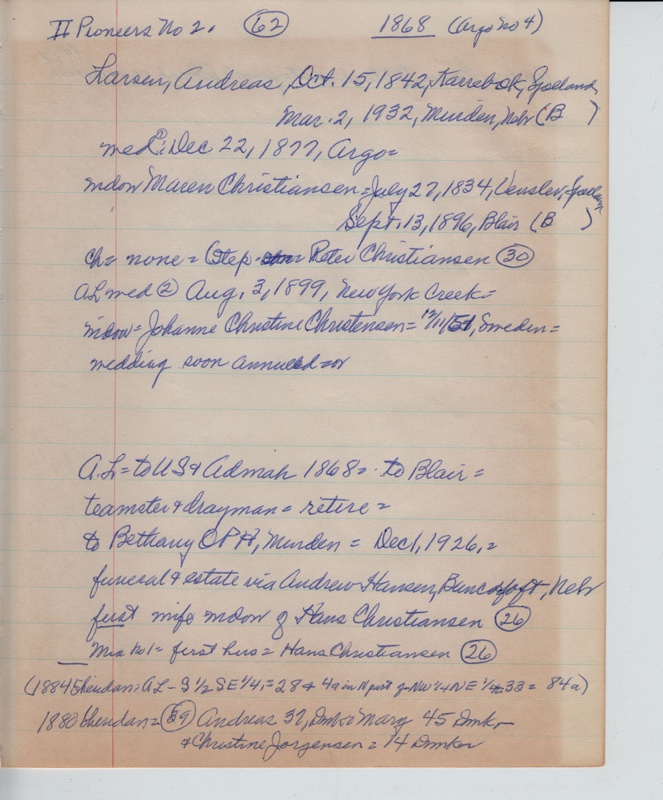 II Pioneers No 2. (62) 1868 (Argo No 4)
Larsen, Andreas, Oct. 15, 1842, Karrebæk, Sjælland
Mar. 2, 1932, Minden, Nebr (B )
wed: Dec 22, 1877, Argo =
widow Maren Christiansen = July 27, 1834, Venslev, Sjælland
Sept. 13, 1896, Blair (B )
ch = none = Step Peter Christiansen (30)
A L wed (2) Aug. 3, 1899, New York Creek =
widow = Johanne Christine Christensen = 12/11/51, Sweden =
wedding soon annulled =
A. L = to US & Admah 1868 = to Blair =
teamster & drayman = retire =
to Bethany OPH, Minden = Dec 1, 1926, =
funeral & estate via Andrew Hansen, Bancroft, Nebr
first wife widow of Hans Christiansen (26)
Mrs No 1 = first hus = Hans Christiansen (26)
(1884 Sheridan: A L - S 1/2 SE 1/4, = 28 & 4a in N part of NW 1/4 NE 1/4 33 = 84a)
1880 Sheridan = (89) Andreas 37, Dmk & Mary 45 Dmk
& Christine Jorgensen = 14 Dmk